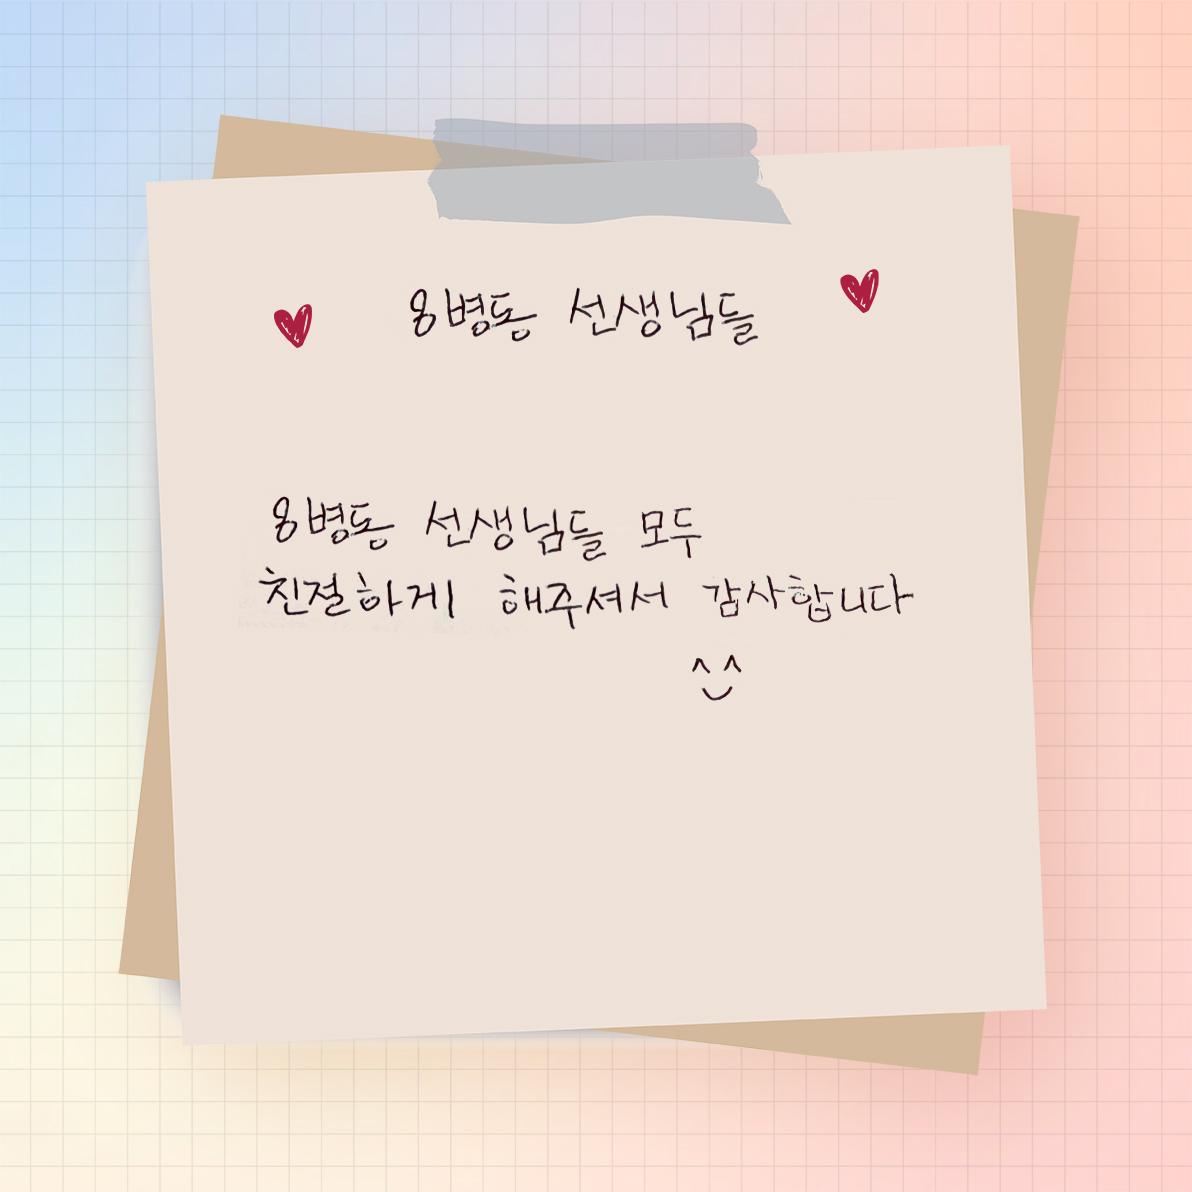 8병동 선생님들
8병동 선생님들 모두
친절하게 해주셔서 감사합니다
^^